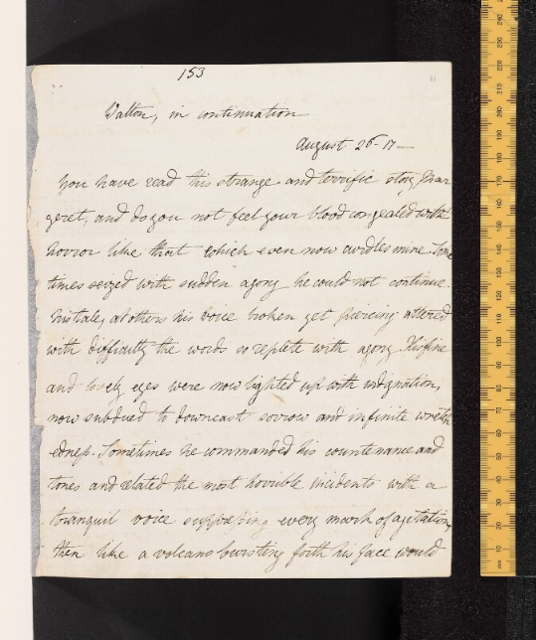 153
Walton, in continuation
August 26- 17—
You have read this strange and terrific story Mar
geret, and do you not feel your blood congealed with
horror like that which even now curdles mine. Some
times seized with sudden agony he could not continue
his tale, at others his voice broken yet piercing uttered
with difficulty the words so replete with agony. His fine
and lovely eyes were now lighted up with indignation,
now subdued to downcast sorrow and infinite wretch
edness. Sometimes he commanded his countenance and
tones and related the most horrible incidents with a
tranquil voice suppressing every mark of agitation,
then like a volcano bursting forth his face would